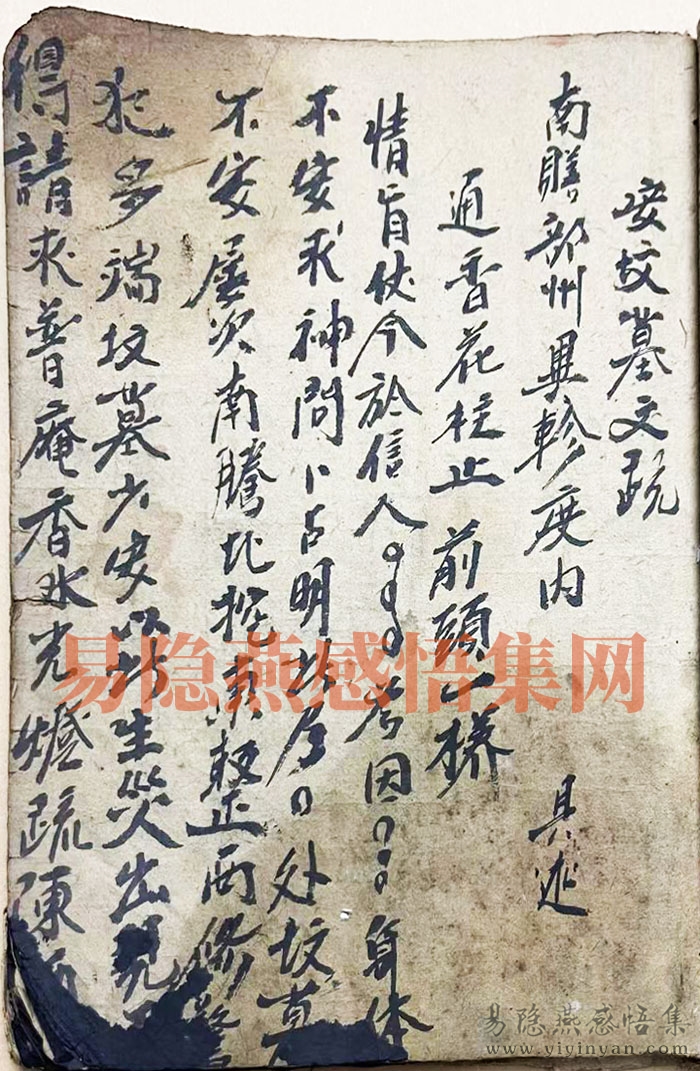 安坟墓文疏
南贍部州異軫度内 具述
通香花枝止 前頭一様
情旨伏今於信人 考因 身体
不安求神問卜占明 处坟墓
不安屡次南腾北 東 西修
犯多端坟墓少安以 生災出現
得請求普庵香水光燈疏陳
易隐燕感悟集网
易隐燕感悟集
www.yiyinyan.com